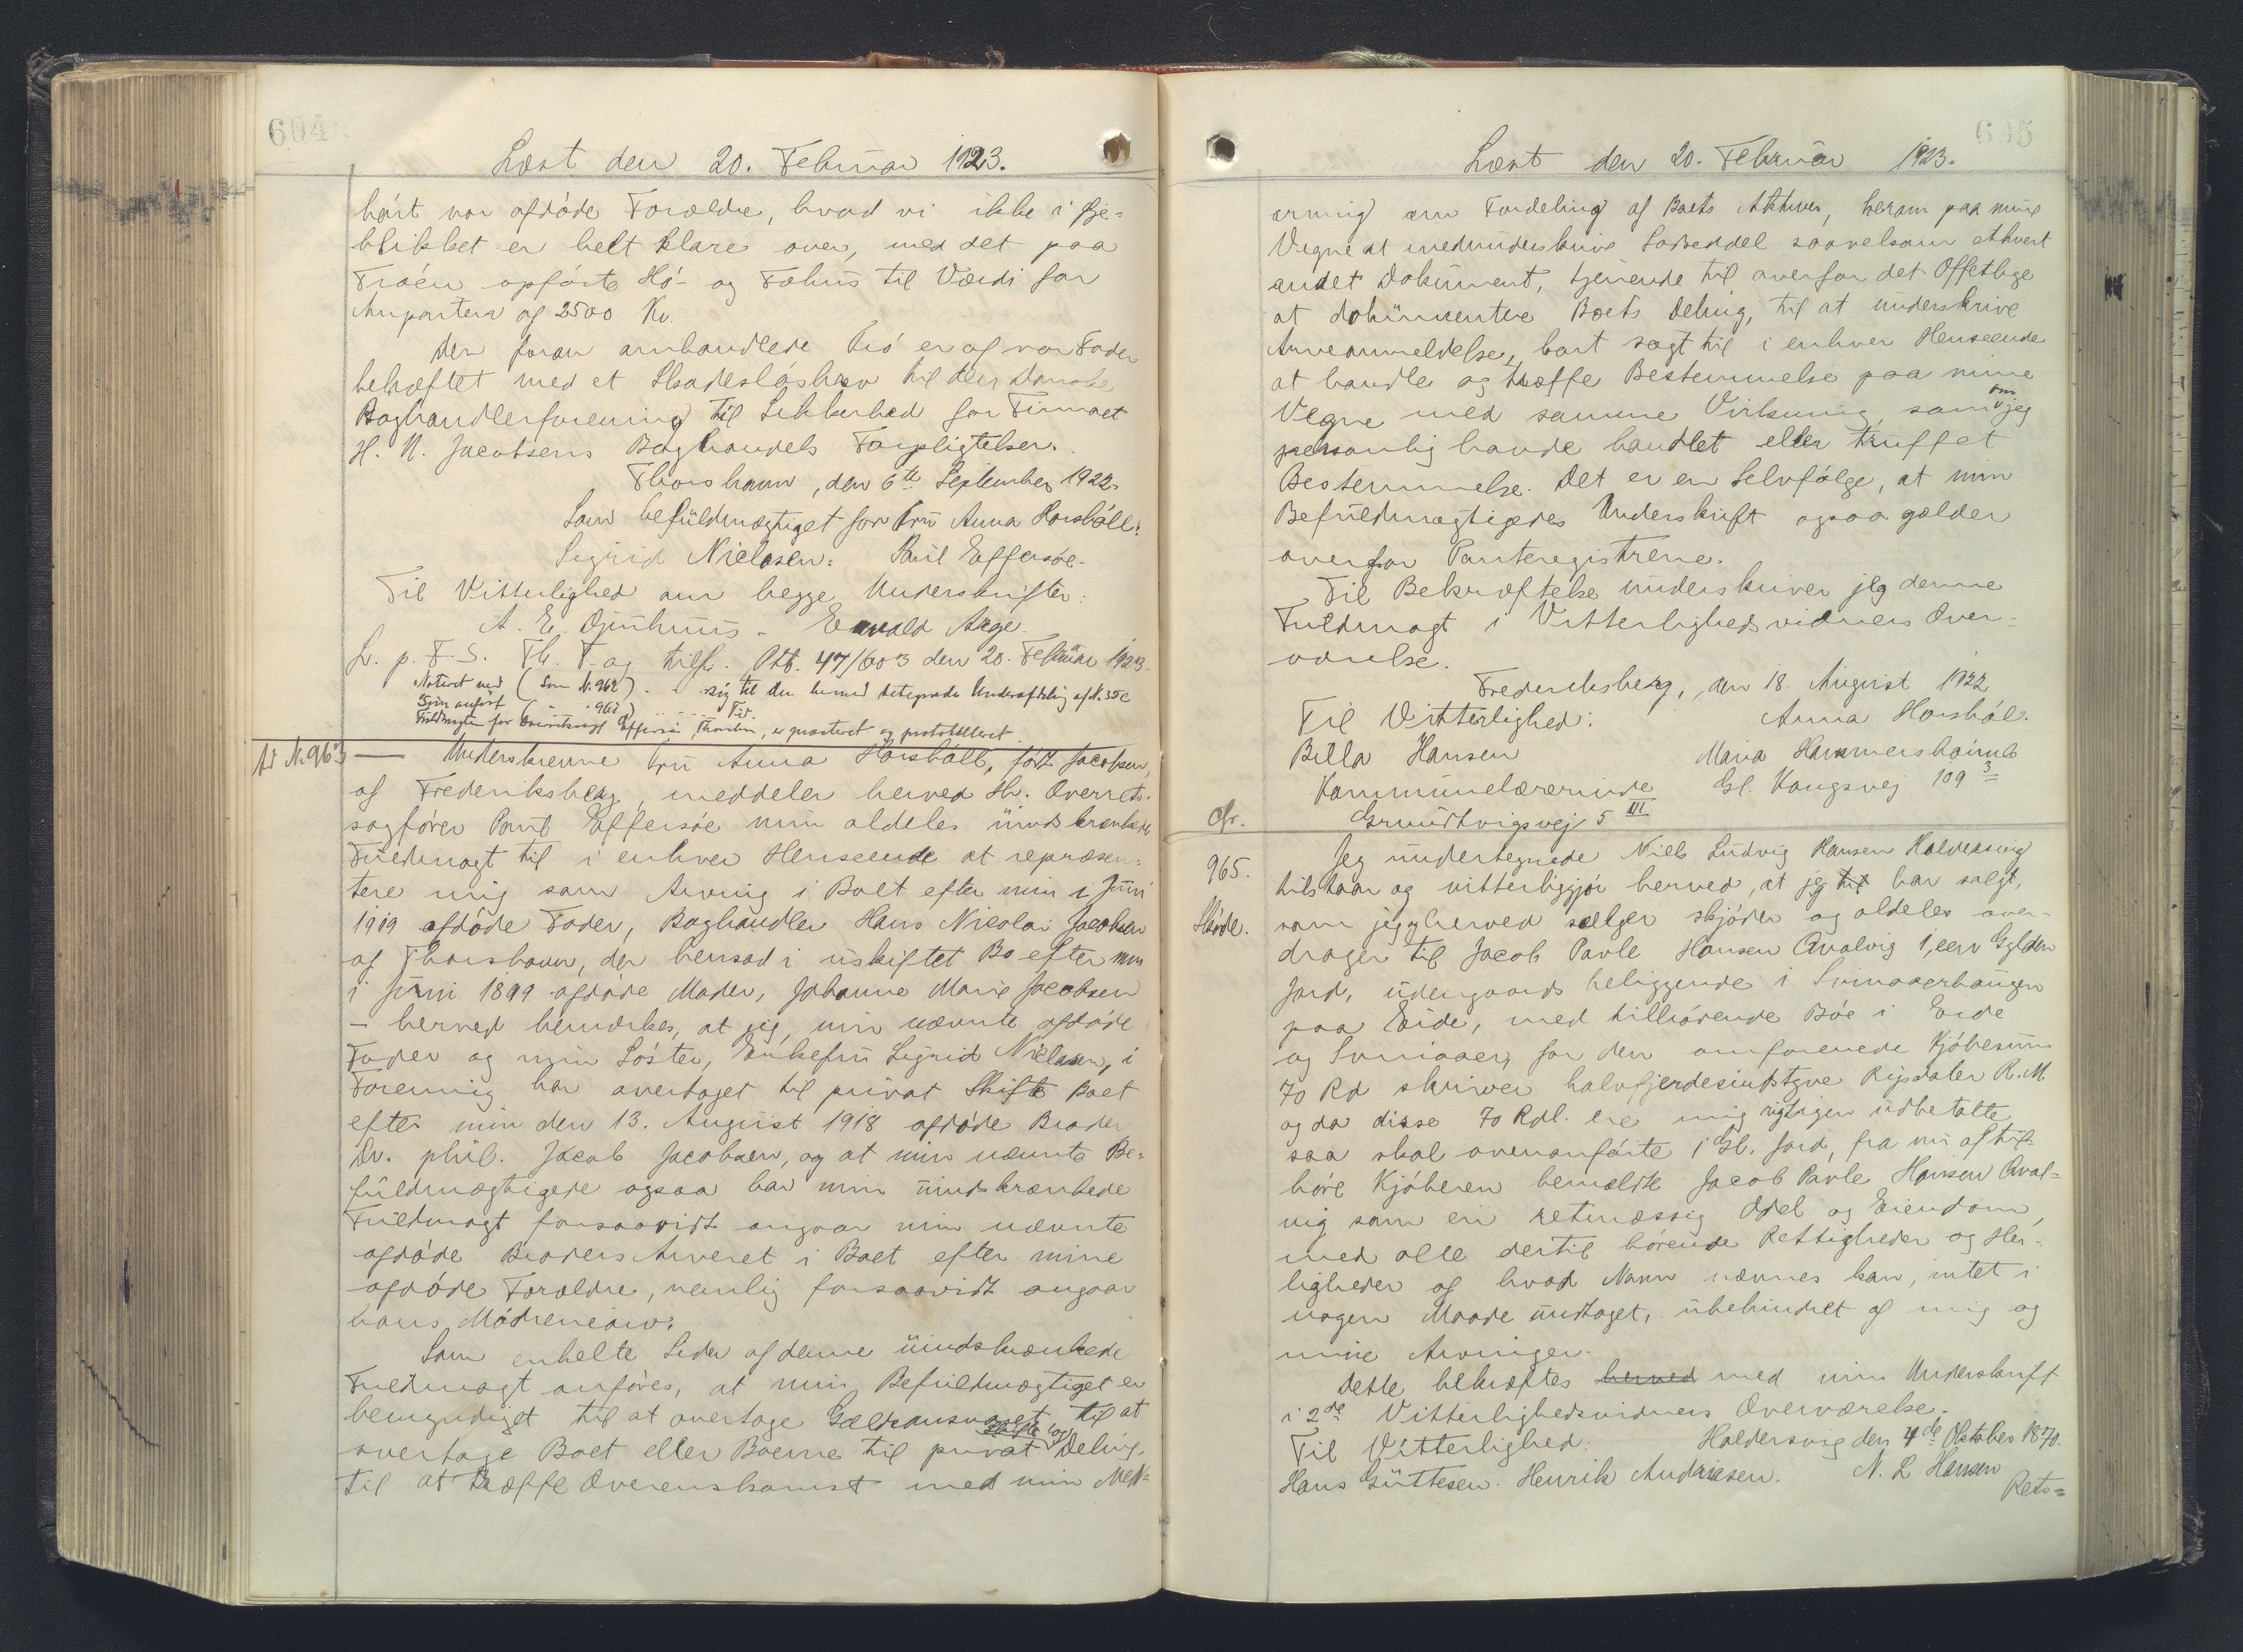 604
Læst den 20. Februar 1923.
hørt vor afdøde Forældre, hvad vi ikke i Øje-
blikket er helt klare over, med det paa
Trøen opførte Hø- og Fæhus til Værdi for
Anparten af 2500 Kr.
Den foran omhandlede Trø er af vor Fader
behæftet med et Skadesløsbrev til den Danske
Boghandlerforening til Sikkerhed for Firmaet
H. N. Jacobsens Boghandels Forpligtelser.
Thorshavn, den 6te September 1922.
Som befuldmægtiget for Fru Anna Horsbøll:
Sigrid Nielsen. Poul Effersøe.
Til Vitterlighed om begge Underskrifter:
A. E. Djurhuus. Ewald Arge.
L. p. F. S. Th. T. og tilf. Ptb. 47/603 den 20. Februar 1923.
Noteret ved (som N. 962) - sig til den herved betegnede Underafdeling af N. 35c
Fuldmagten for Overretssagf. Effersøe, Thorshavn, er præsteret og protokolleret.
Ad N. 963 — Underskrevne Fru Anna Horsbøll, født Jacobsen,
af Frederiksberg, meddeler herved Hr. Overrets-
sagfører Poul Effersøe min aldeles uindskrænkede
Fuldmagt til i enhver Henseende at repræsen-
tere mig som Arving i Boet efter min i Juni
1919 afdøde Fader, Boghandler Hans Nicolai Jacobsen
af Thorshavn, der hensad i uskiftet Bo efter min
i Juni 1899 afdøde Moder, Johanne Marie Jacobsen
- herved bemærkes, at jeg, min nævnte afdøde
Fader og min Søster, Enkefru Sigrid Nielsen, i
Forening har overtaget til privat Skifte Boet
efter min den 13. August 1918 afdøde Broder
Dr. phil. Jacob Jacobsen, og at min nævnte Be-
fuldmægtigede ogsaa har min uindskrænkede
Fuldmagt forsaavidt angaar min nævnte
afdøde Broders Arveret i Boet efter mine
afdøde Forældre, nemlig forsaavidt angaar
hans Mødrenearv.
Som enkelte Sider af denne uindskrænkede
Fuldmagt anføres, at min Befuldmægtiget er
bemyndiget til at overtage Gældsansvaret, til at
overtage Boet eller Boerne til privat Skifte og Deling,
til at træffe Overenskomst med min Med-
605
Læst den 20. Februar 1923.
arving om Fordeling af Boets Aktiver, herom paa mine
Vegne at medunderskrive Lodseddel saavelsom ethvert
andet Dokument, tjenende til overfor det Offetlige
at dokumentere Boets Deling, til at underskrive
Arveanmeldelse, kort sagt til i enhver Henseende
at handle og træffe Bestemmelse paa mine
Vegne med samme Virkning, som om jeg
personlig havde handlet eller truffet
Bestemmelse. Det er en Selvfølge, at min
Befuldmægtigedes Underskrift ogsaa gælder
overfor Panteregistrene.
Til Bekræftelse underskriver jeg denne
Fuldmagt i Vitterlighedsvidners Over-
værelse.
Frederiksberg, den 18. August 1922
Til Vitterlighed: Anna Horsbøl.
Billa Hansen Maria Hammershaimb
Kommunelærerinde Gl. Kongevej 109 3
Grundtvigsvej 5 III
Cfr.
965. Jeg undertegnede Niels Ludvig Hansen Haldersvig
tilstaar og vitterliggjør herved, at jeg til har solgt,
Skøde. som jeg herved sælger skjøder og aldeles over-
drager til Jacob Pavle Hansen Qvalvig 1, een Gylden
Jord, udengaards beliggende i Svinaaerhaugen
paa Eide, med tilhørende Bøe i Eide
og Svinaaer, for den omforenede Kjøbesum
70 Rd skriver halvfjerdesindstyve Rigsdaler R. M.
og da disse 70 Rdl. ere mig rigtigen udbetalte
saa skal ovenanførte 1 Gl. Jord, fra nu af til-
høre Kjøberen bemældte Jacob Pavle Hansen Qval-
vig som en retmæssig Odel og Eiendom,
med alle dertil hørende Rettigheder og Her-
ligheder af hvad Navn nævnes kan, intet i
nogen Maade undtaget, ubehindret af mig og
mine Arvinger.
Dette bekræftes herved med min Underskrift
i 2de Vitterlighedsvidners Overværelse.
Til Vitterlighed: Haldersvig den 4de Oktober 1870.
Hans Guttesen. Henrik Andreasen. N. L. Hansen
Rets-